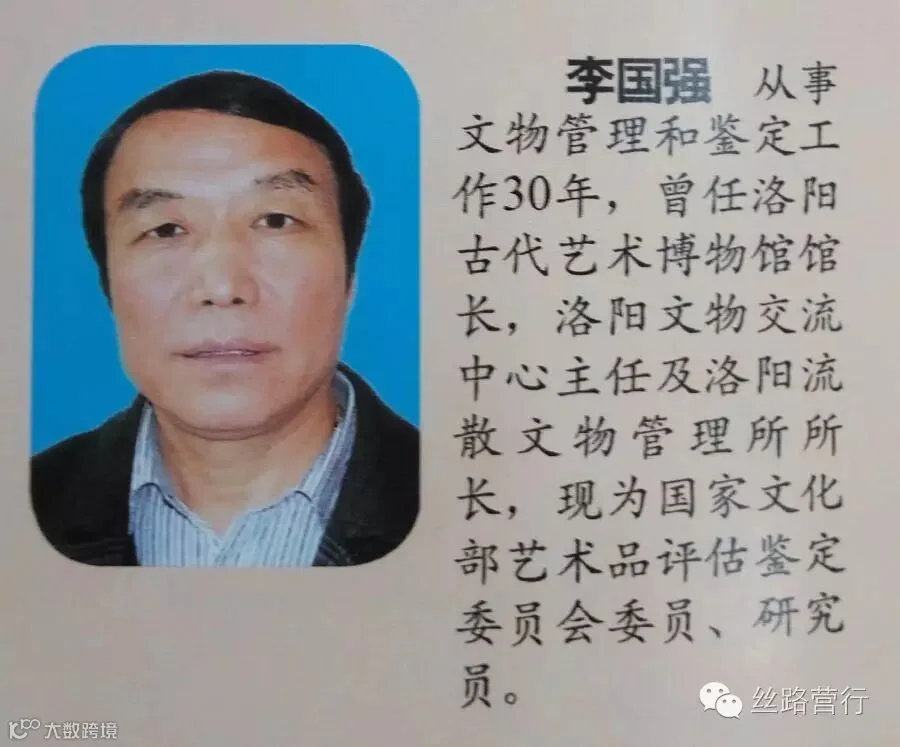 李国强 从事
文物管理和鉴定工
作30年，曾任洛阳
古代艺术博物馆馆
长，洛阳文物交流
中心主任及洛阳流
散文物管理所所
长，现为国家文化
部艺术品评估鉴定
委员会委员、研究
员。
丝路营行
大数跨境